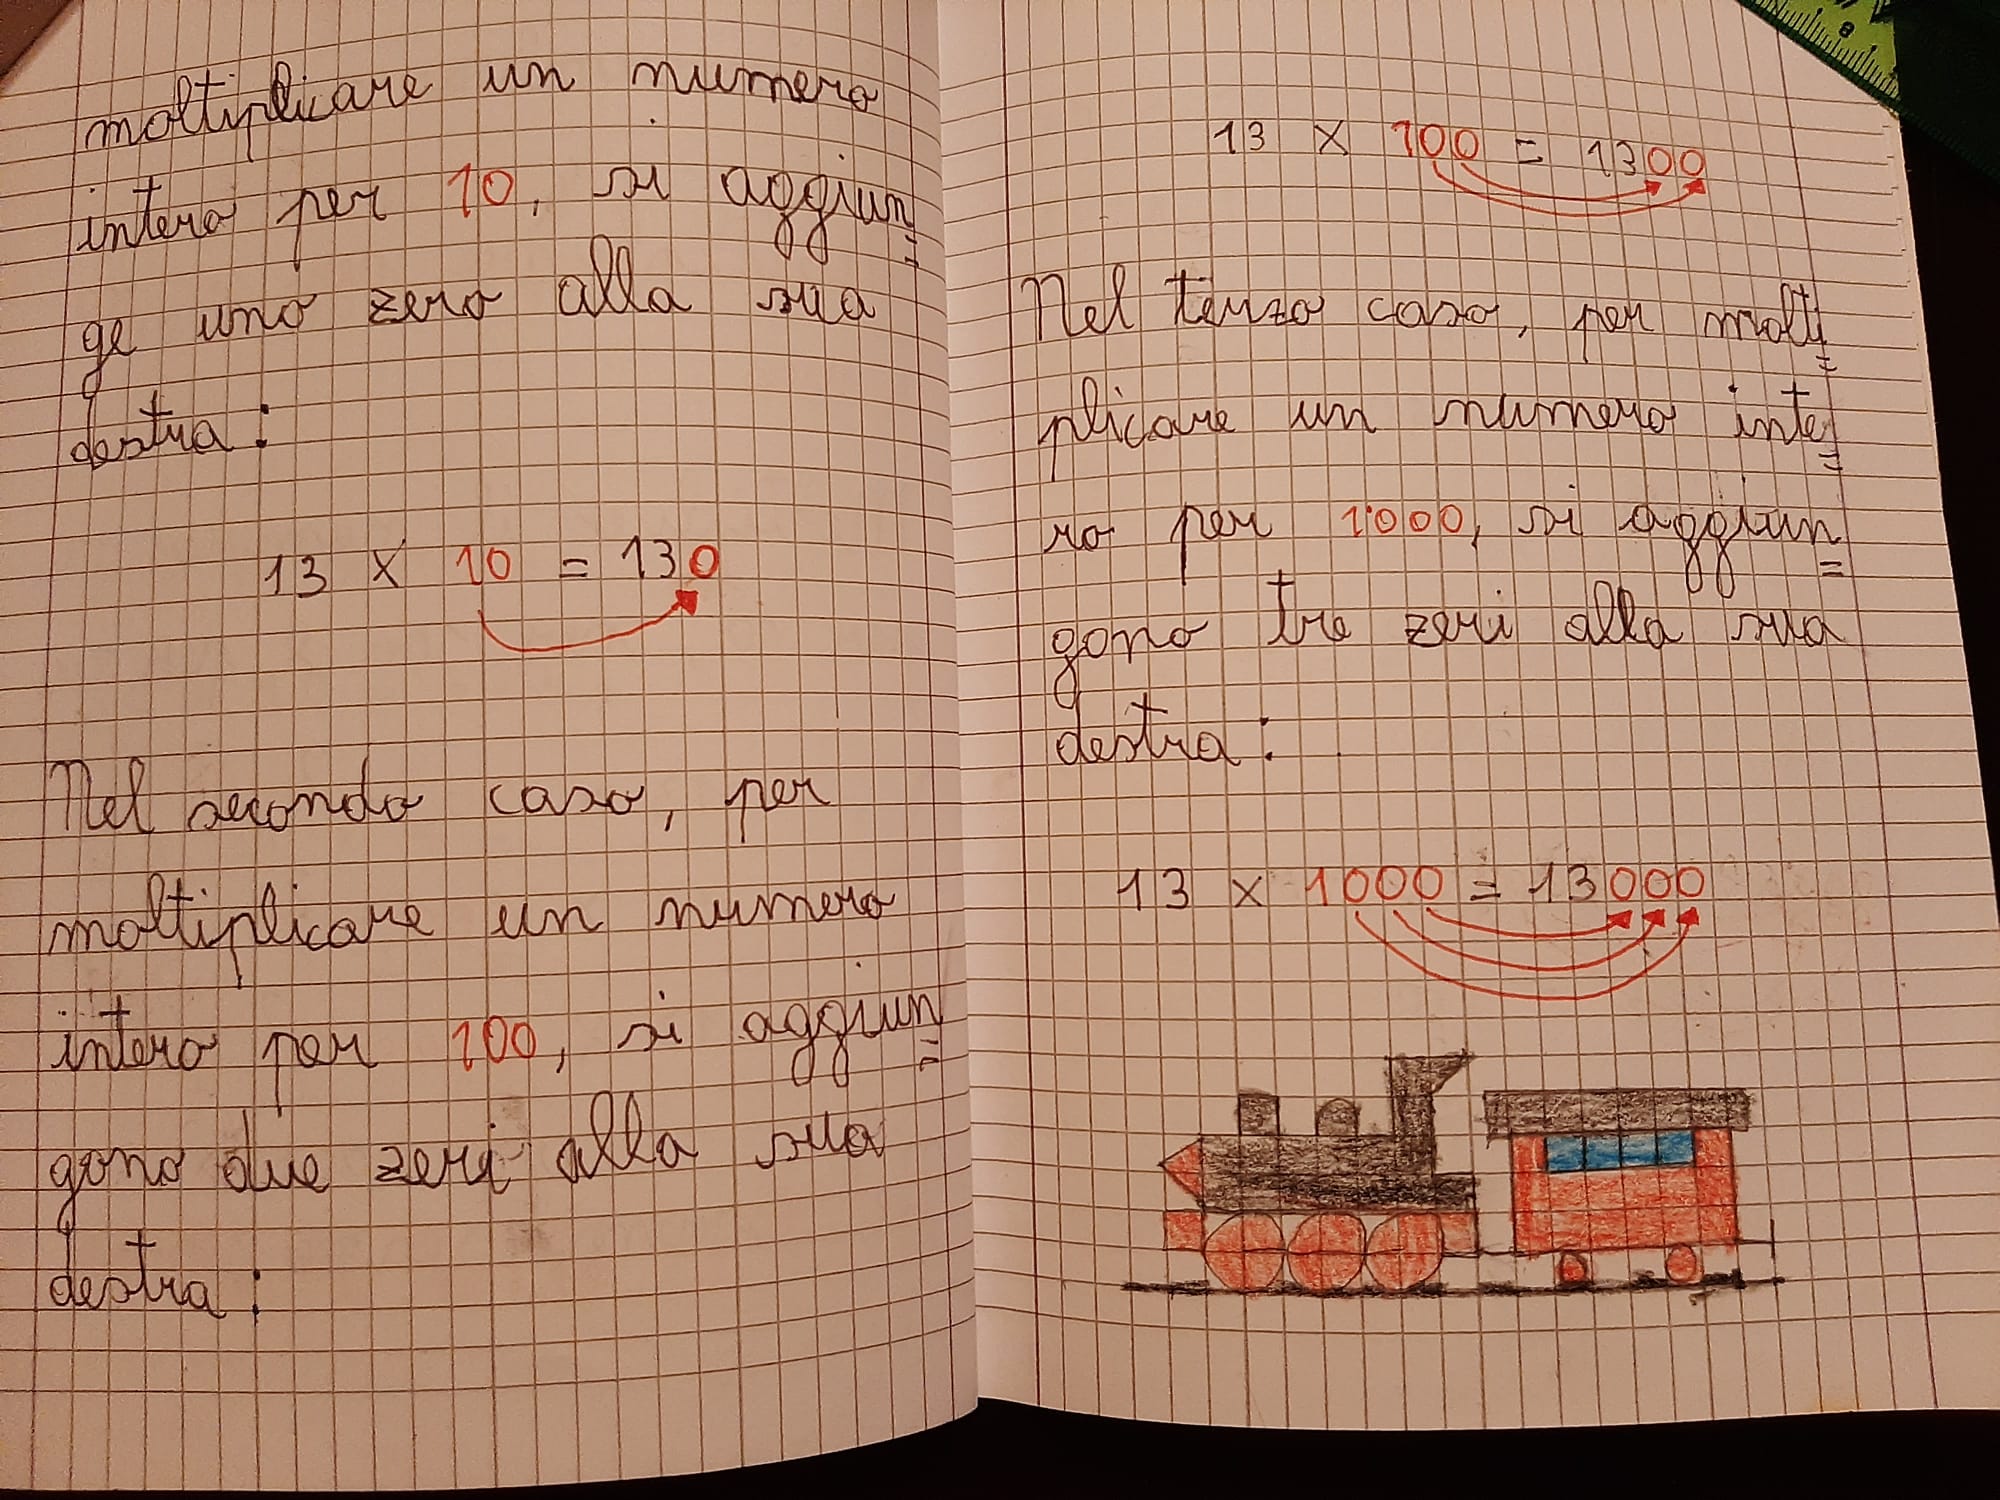 moltiplicare un numero
intero per 10, si aggiun=
ge uno zero alla sua
destra:
13 × 10 = 130
Nel secondo caso, per
moltiplicare un numero
intero per 100, si aggiun=
gono due zeri alla sua
destra:
13 × 100 = 1300
Nel terzo caso, per molti=
plicare un numero inte=
ro per 1000, si aggiun=
gono tre zeri alla sua
destra:
13 × 1000 = 13000